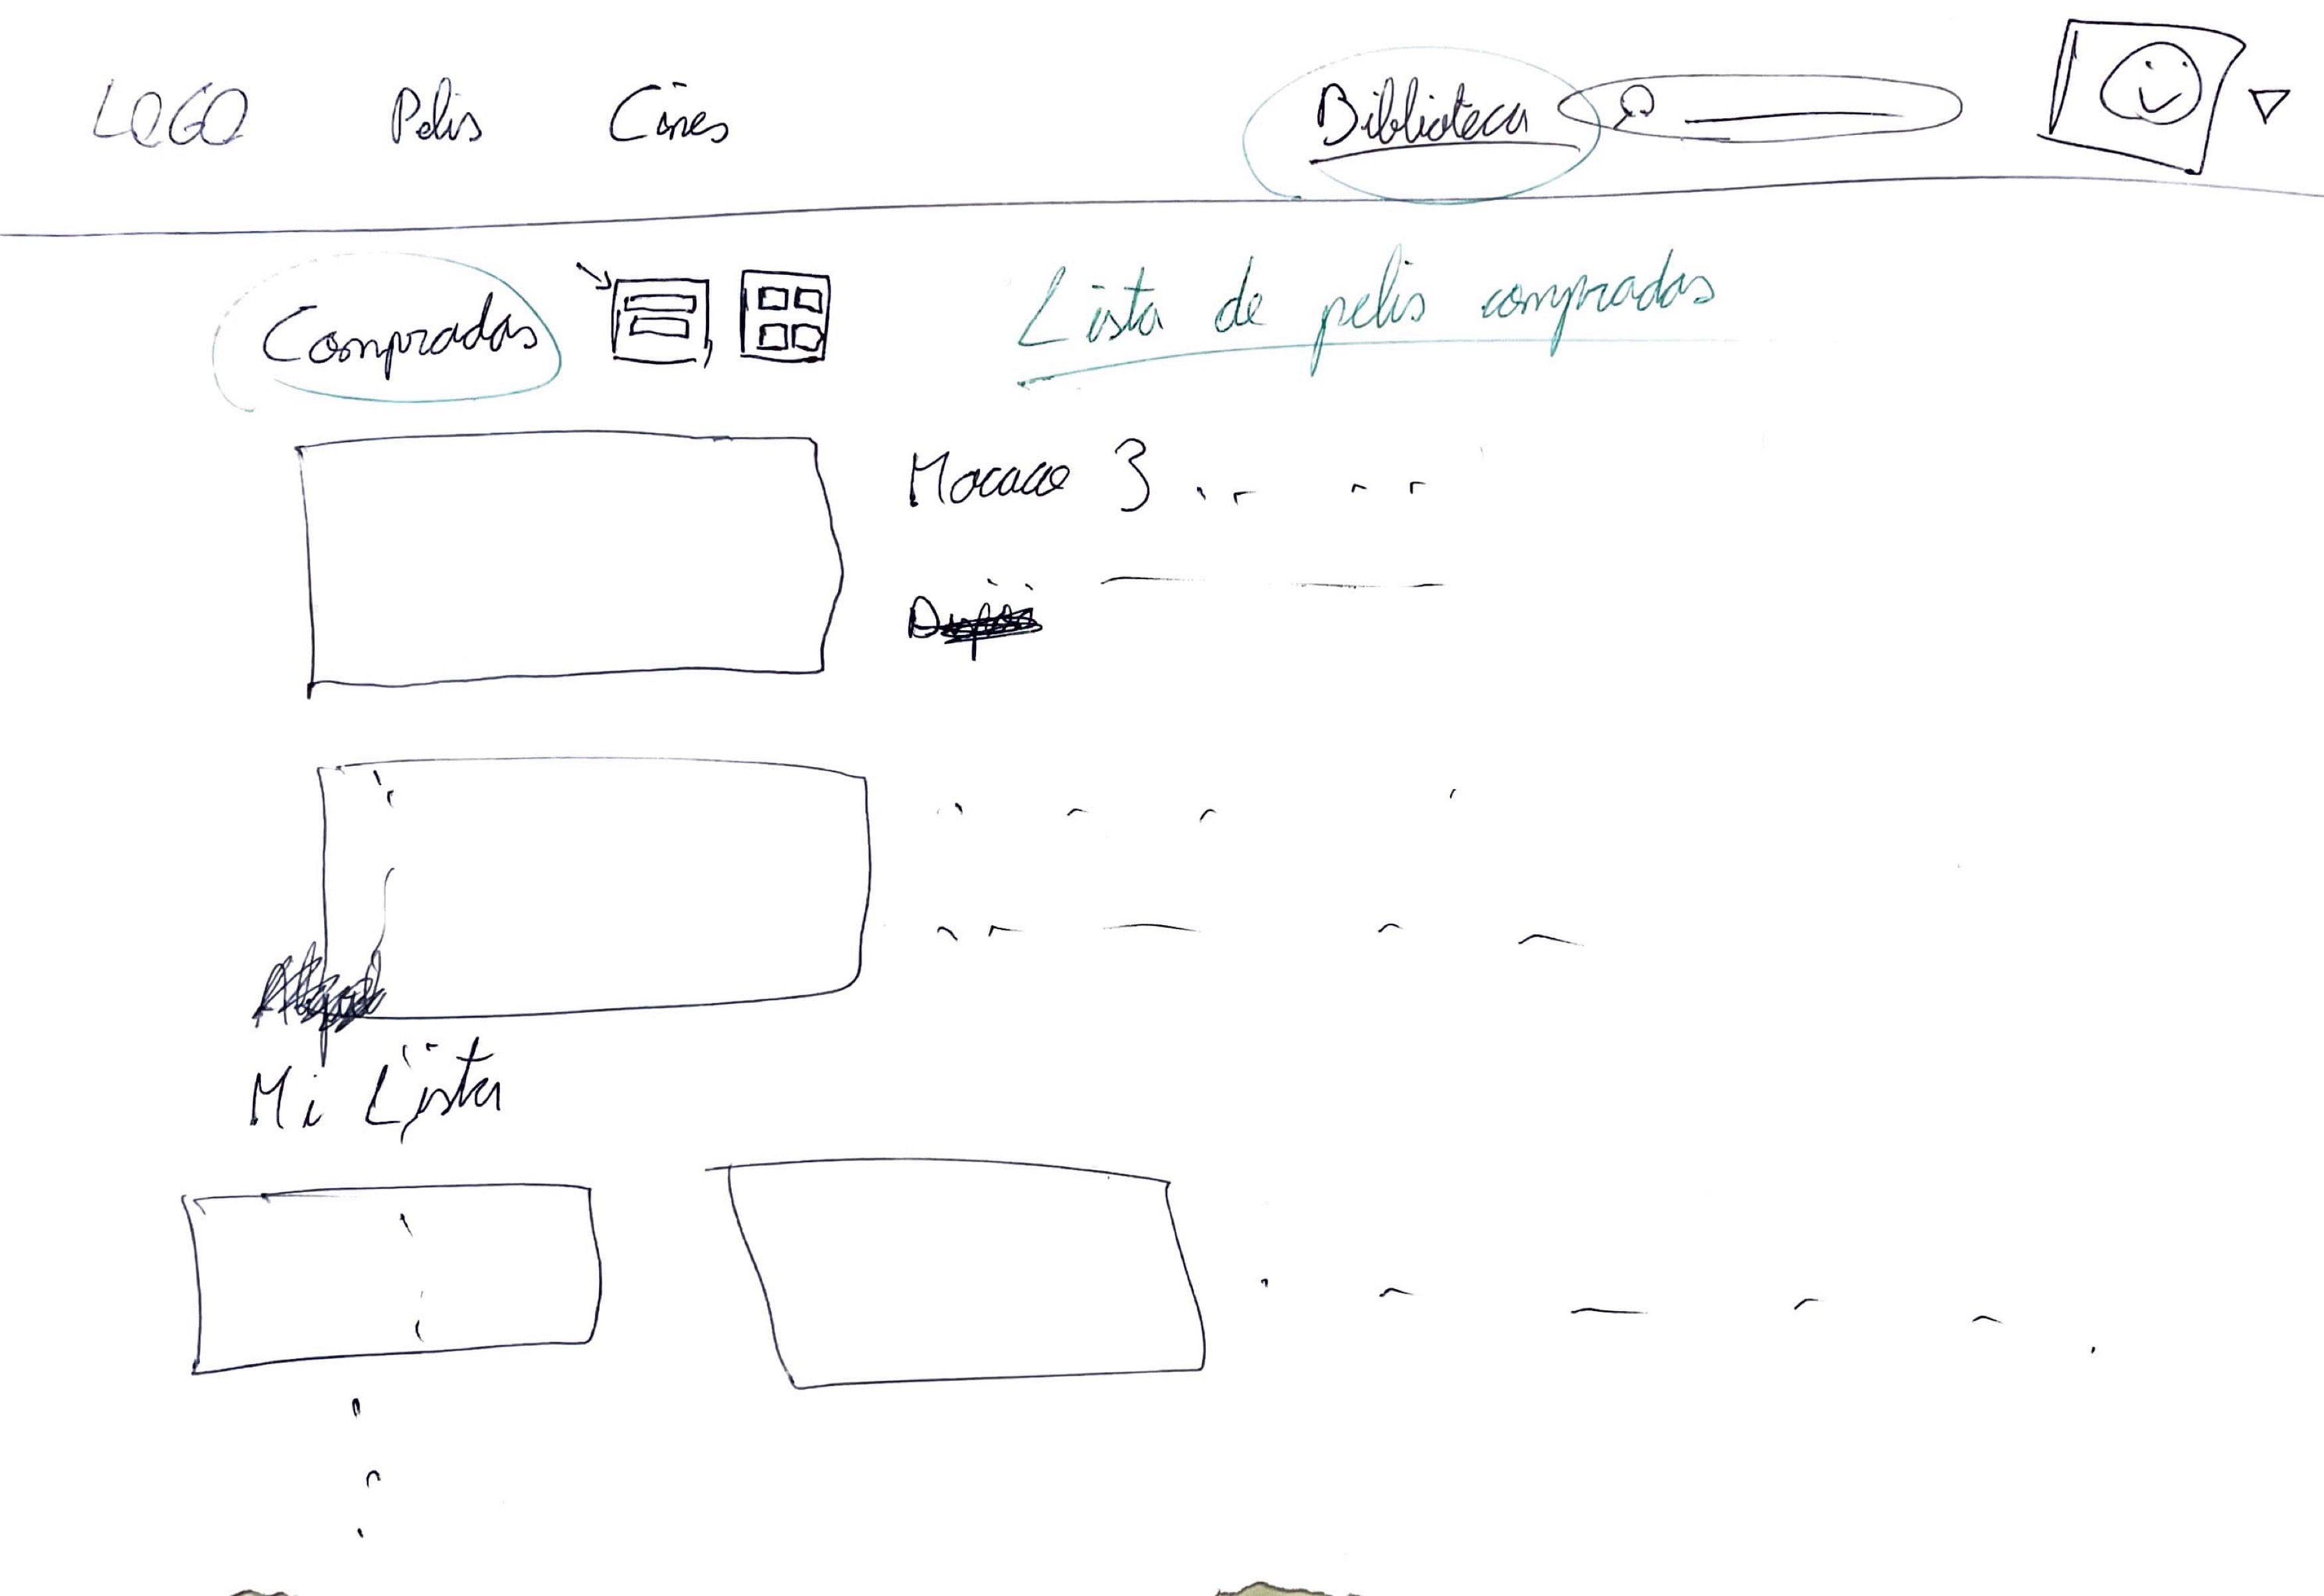 LOGO Pelis Cines Biblioteca
Compradas Lista de pelis compradas
Mocaco 3
Mi Lista